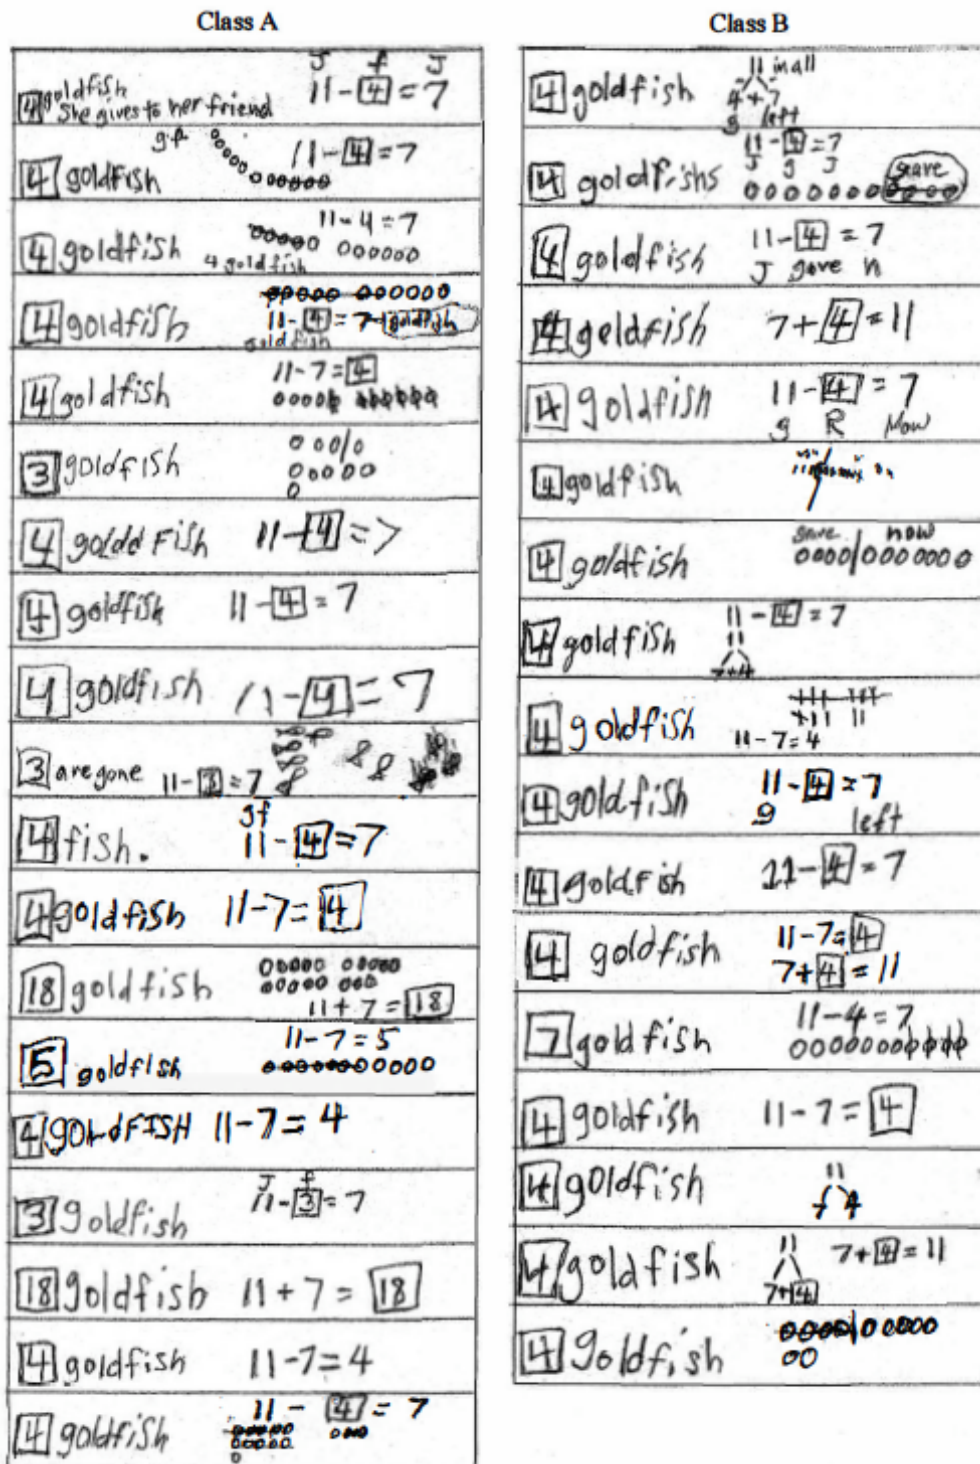 Class A
J f J
4 goldfish 11 - 4 = 7
She gives to her friend
g.f.
4 goldfish 11 - 4 = 7
11 - 4 = 7
4 goldfish
4 goldfish
4 goldfish 11 - 4 = 7 goldfish
goldfish
4 goldfish 11 - 7 = 4
3 goldfish
4 goldd Fish 11 - 4 = 7
4 goldfish 11 - 4 = 7
4 goldfish 11 - 4 = 7
3 are gone 11 - 3 = 7
gf
4 fish. 11 - 4 = 7
4 goldfish 11 - 7 = 4
18 goldfish
11 + 7 = 18
11 - 7 = 5
5 goldfish
4 GOLDFISH 11 - 7 = 4
J f
3 goldfish 11 - 3 = 7
18 goldfish 11 + 7 = 18
4 goldfish 11 - 7 = 4
4 goldfish 11 - 4 = 7
Class B
11 in all
4 goldfish 4 + 7
g left
11 - 4 = 7
4 goldfishs J g J gave
4 goldfish 11 - 4 = 7
J gave n
4 goldfish 7 + 4 = 11
4 goldfish 11 - 4 = 7
g R Now
4 goldfish
gave now
4 goldfish
11 - 4 = 7
4 goldfish 11
7 + 4
4 goldfish
11 - 7 = 4
4 goldfish 11 - 4 = 7
g left
4 goldfish 11 - 4 = 7
4 goldfish 11 - 7 = 4
7 + 4 = 11
7 goldfish 11 - 4 = 7
4 goldfish 11 - 7 = 4
4 goldfish 11
7 4
4 goldfish 11 7 + 4 = 11
7 + 4
4 goldfish